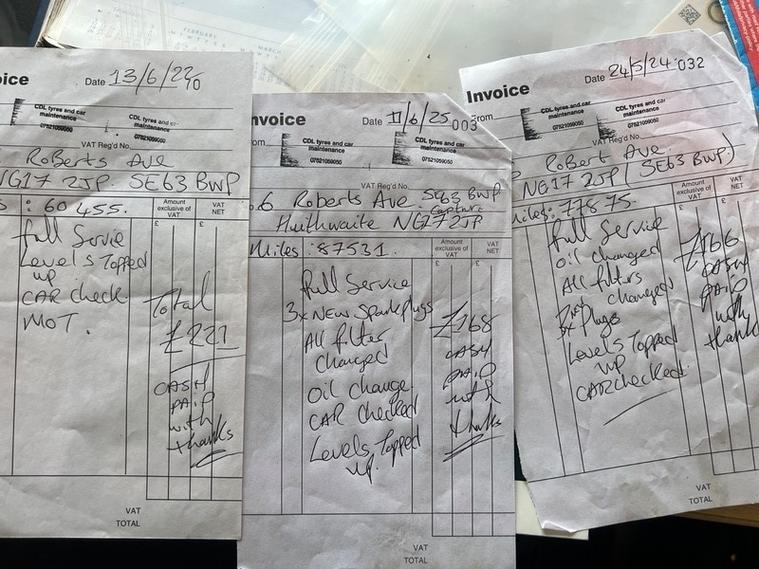 oice
Date 13/6/22
CDL tyres and car
maintenance
07521059050
VAT Reg'd No.
Roberts Ave
NG17 2JP. SE63 BWP
: 60 455.
Amount
exclusive of
VAT
VAT
NET
£
£
full Servie
Levels Topped
up
CAR check
MOT.
Total
£221
CASH
PAID
with
thanks
VAT
TOTAL
nvoice
Date 11/6/25 003
rom
CDL tyres and car
maintenance
07521059050
CDL tyres and car
maintenance
07521059050
VAT Reg'd No.
o.6 Roberts Ave. SE63 BWP
Huithwaite NG17 2JP
Miles : 87531.
Amount
exclusive of
VAT
VAT
NET
£
£
full Service
3x NEW Spark plugs
All filter
changed
Oil change
CAR checked
Levels Topped
up.
£168
CASH
PAID
with
thanks
VAT
TOTAL
Invoice
Date 24/5/24 032
From
CDL tyres and car
maintenance
07521059050
CDL tyres and car
maintenance
07521059050
VAT Reg'd No.
Robert Ave.
NG17 2JP (SE63 BWP)
Miles: 77875.
Amount
exclusive of
VAT
VAT
NET
£
£
full Service
Oil changed
All filters
changed
3x Plugs
Levels Topped
up
CAR checked.
£166
CASH
PAID
with
thank
VAT
TOTAL